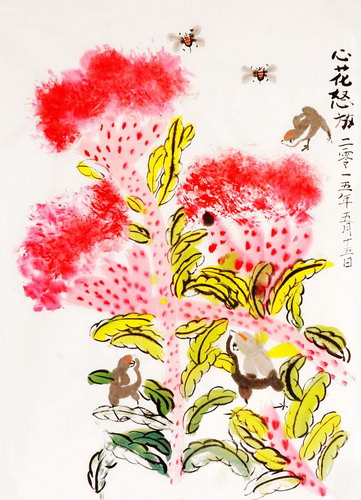 心花怒放 二零一五年五月十五日